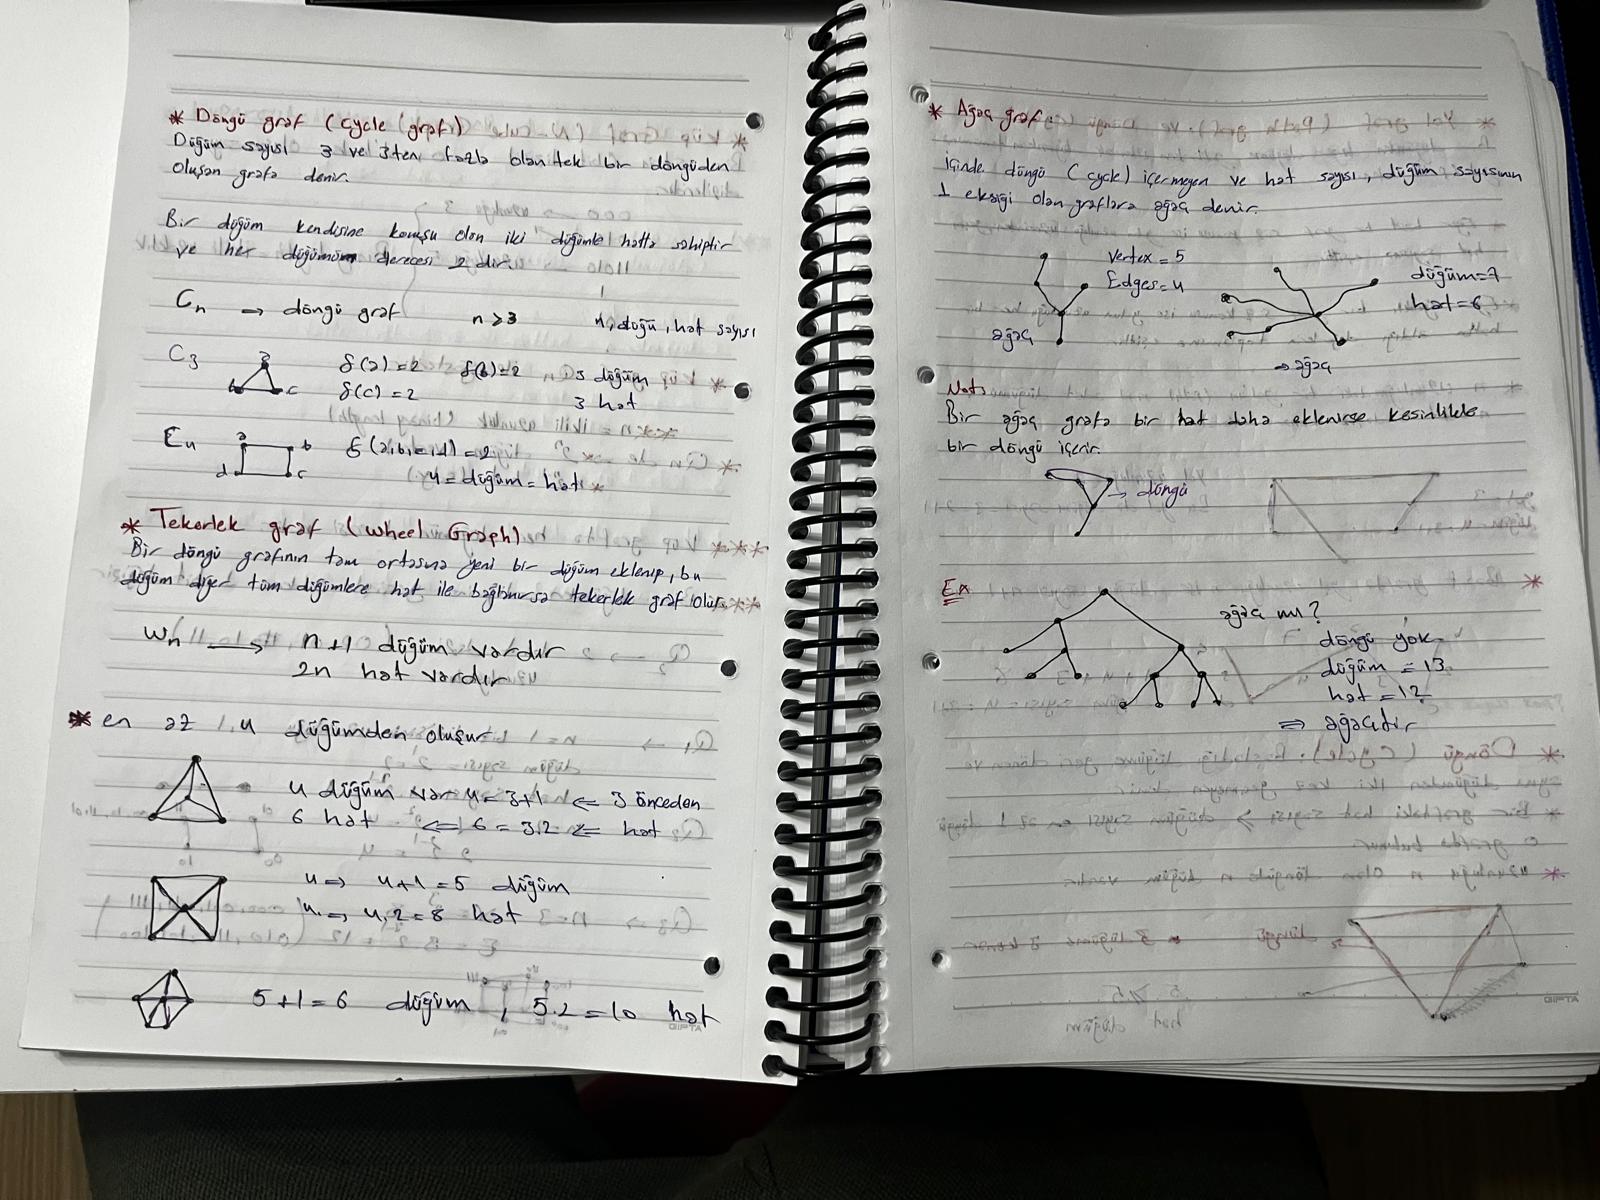 * Döngü graf (cycle graf)
Düğüm sayısı 3 ve 3ten fazla olan tek bir döngüden
oluşan grafa denir.
Bir düğüm kendisine komşu olan iki düğümle hatta sahiptir
ve her düğümün derecesi 2 dir.
Cn → döngü graf n≥3 n, düğü, hat sayısı
C3 a b c δ(a)=2 δ(b)=2 3 düğüm
δ(c)=2 3 hat
C4 a b δ(a,b,c,d)=2
d c 4 = düğüm = hat
* Tekerlek graf (Wheel Graph)
Bir döngü grafının tam ortasına yeni bir düğüm eklenip, bu
düğüm diğer tüm düğümlere hat ile bağlanırsa tekerlek graf olur.
Wn → n+1 düğüm vardır
2n hat vardır
* en az 4 düğümden oluşur
4 düğüm var 4=3+1 ⇐ 3 önceden
6 hat ⇐ 6=3.2 ⇐ hat
4 ⇒ 4+1=5 düğüm
4 ⇒ 4.2=8 hat
5+1=6 düğüm , 5.2=10 hat
GIPTA
* Ağaç graf
içinde döngü (cycle) içermeyen ve hat sayısı, düğüm sayısının
1 eksiği olan graflara ağaç denir.
vertex = 5
Edges=4
ağaç
düğüm=7
hat=6
⇒ ağaç
Not:
Bir ağaç grafa bir hat daha eklenirse kesinlikle
bir döngü içerir.
→ döngü
Ex
ağaç mı?
döngü yok
düğüm = 13
hat = 12
⇒ ağaçtır
GIPTA